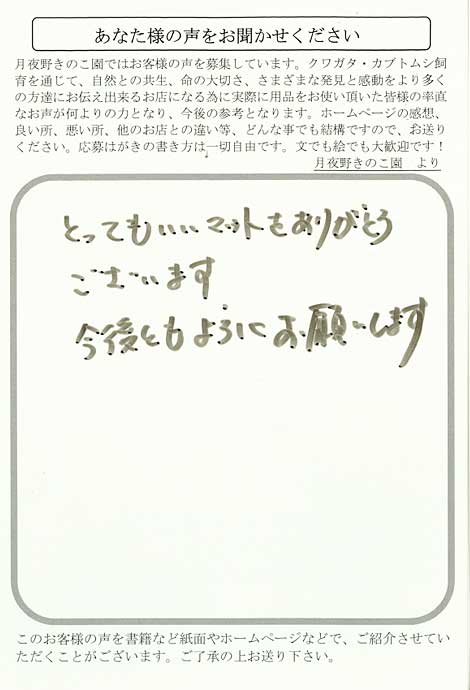 あなた様の声をお聞かせください
月夜野きのこ園ではお客様の声を募集しています。クワガタ・カブトムシ飼
育を通じて、自然との共生、命の大切さ、さまざまな発見と感動をより多く
の方達にお伝え出来るお店になる為に実際に用品をお使い頂いた皆様の率直
なお声が何よりの力となり、今後の参考となります。ホームページの感想、
良い所、悪い所、他のお店との違い等、どんな事でも結構ですので、お送り
ください。応募はがきの書き方は一切自由です。文でも絵でも大歓迎です！
月夜野きのこ園　より
とってもいいマットをありがとう
ございます
今後ともよろにお願いします
このお客様の声を書籍など紙面やホームページなどで、ご紹介させてい
ただくことがございます。ご了承の上お送り下さい。